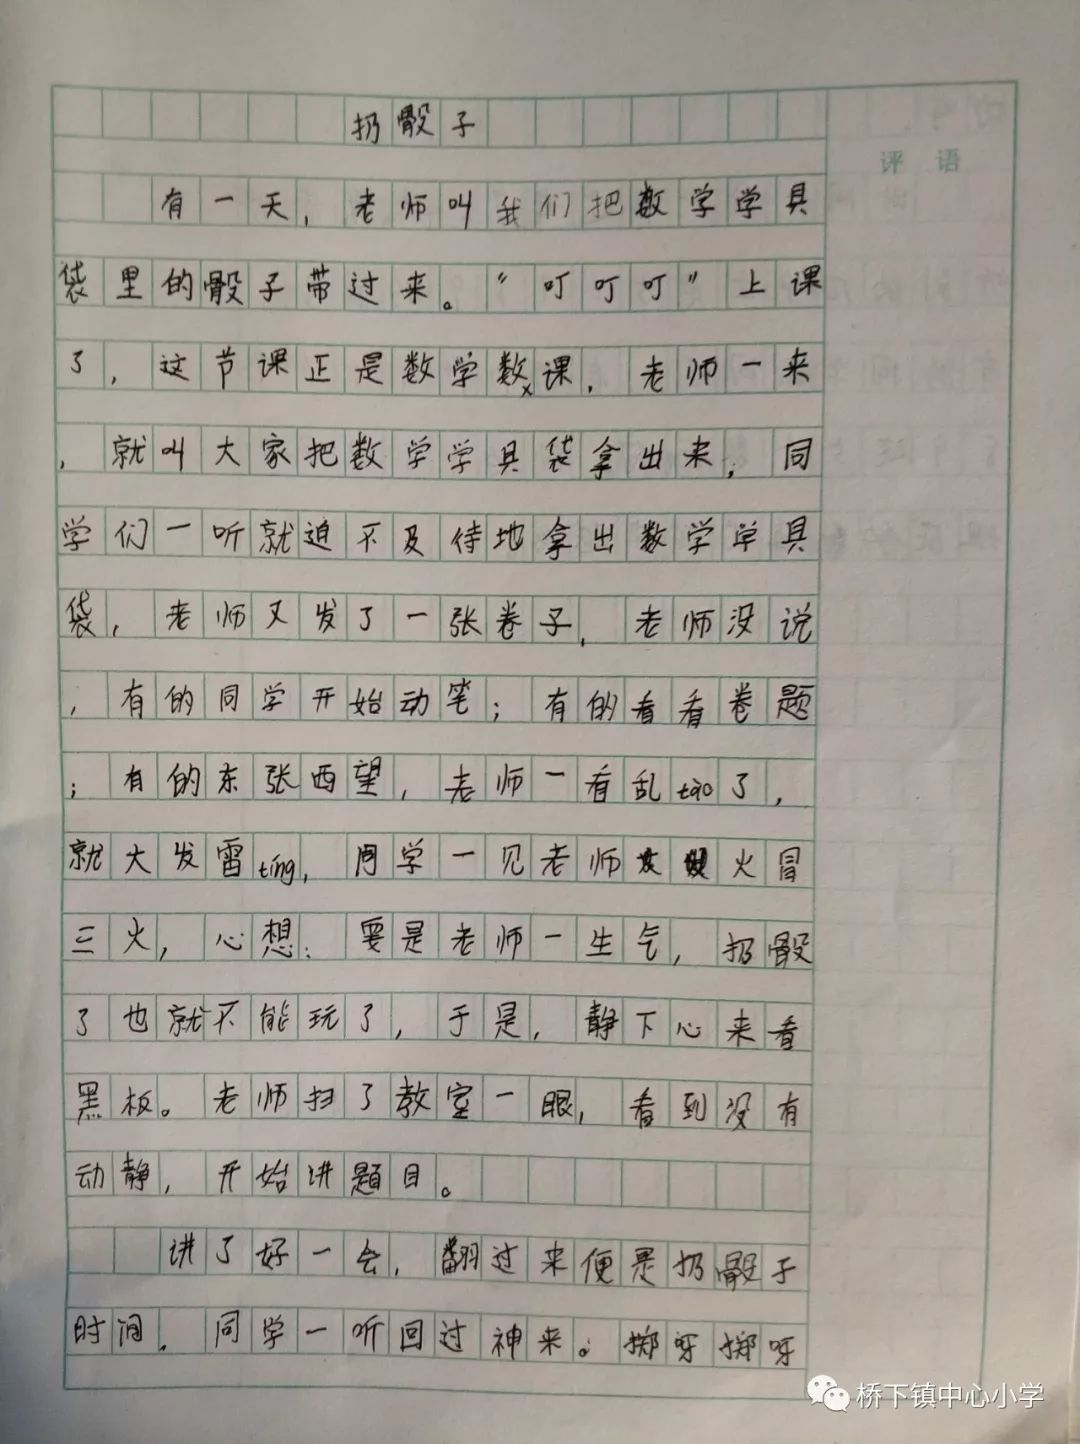 扔骰子
评 语
有一天，老师叫我们把数学学具
袋里的骰子带过来。“叮叮叮”上课
了，这节课正是数学数课，老师一来
，就叫大家把数学学具袋拿出来，同
学们一听就迫不及待地拿出数学学具
袋，老师又发了一张卷子，老师没说
，有的同学开始动笔；有的看看卷题
；有的东张西望，老师一看乱tào了，
就大发雷tíng，同学一见老师火冒
三火，心想：要是老师一生气，扔骰
了也就不能玩了，于是，静下心来看
黑板。老师扫了教室一眼，看到没有
动静，开始讲题目。
讲了好一会，翻过来便是扔骰子
时间．同学一听回过神来。掷呀掷呀
桥下镇中心小学